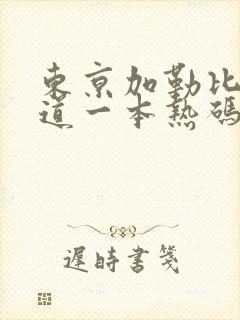 東京加勒比
道一本熱碼
遲時書箋